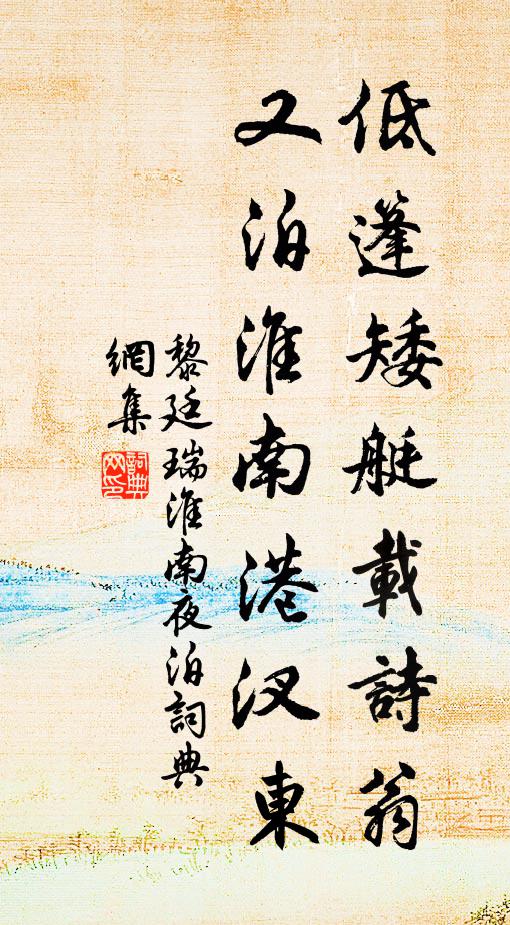 低篷矮艇載詩翁
又泊淮南港汊東
黎廷瑞淮南夜泊詞典
網集
詞典網印